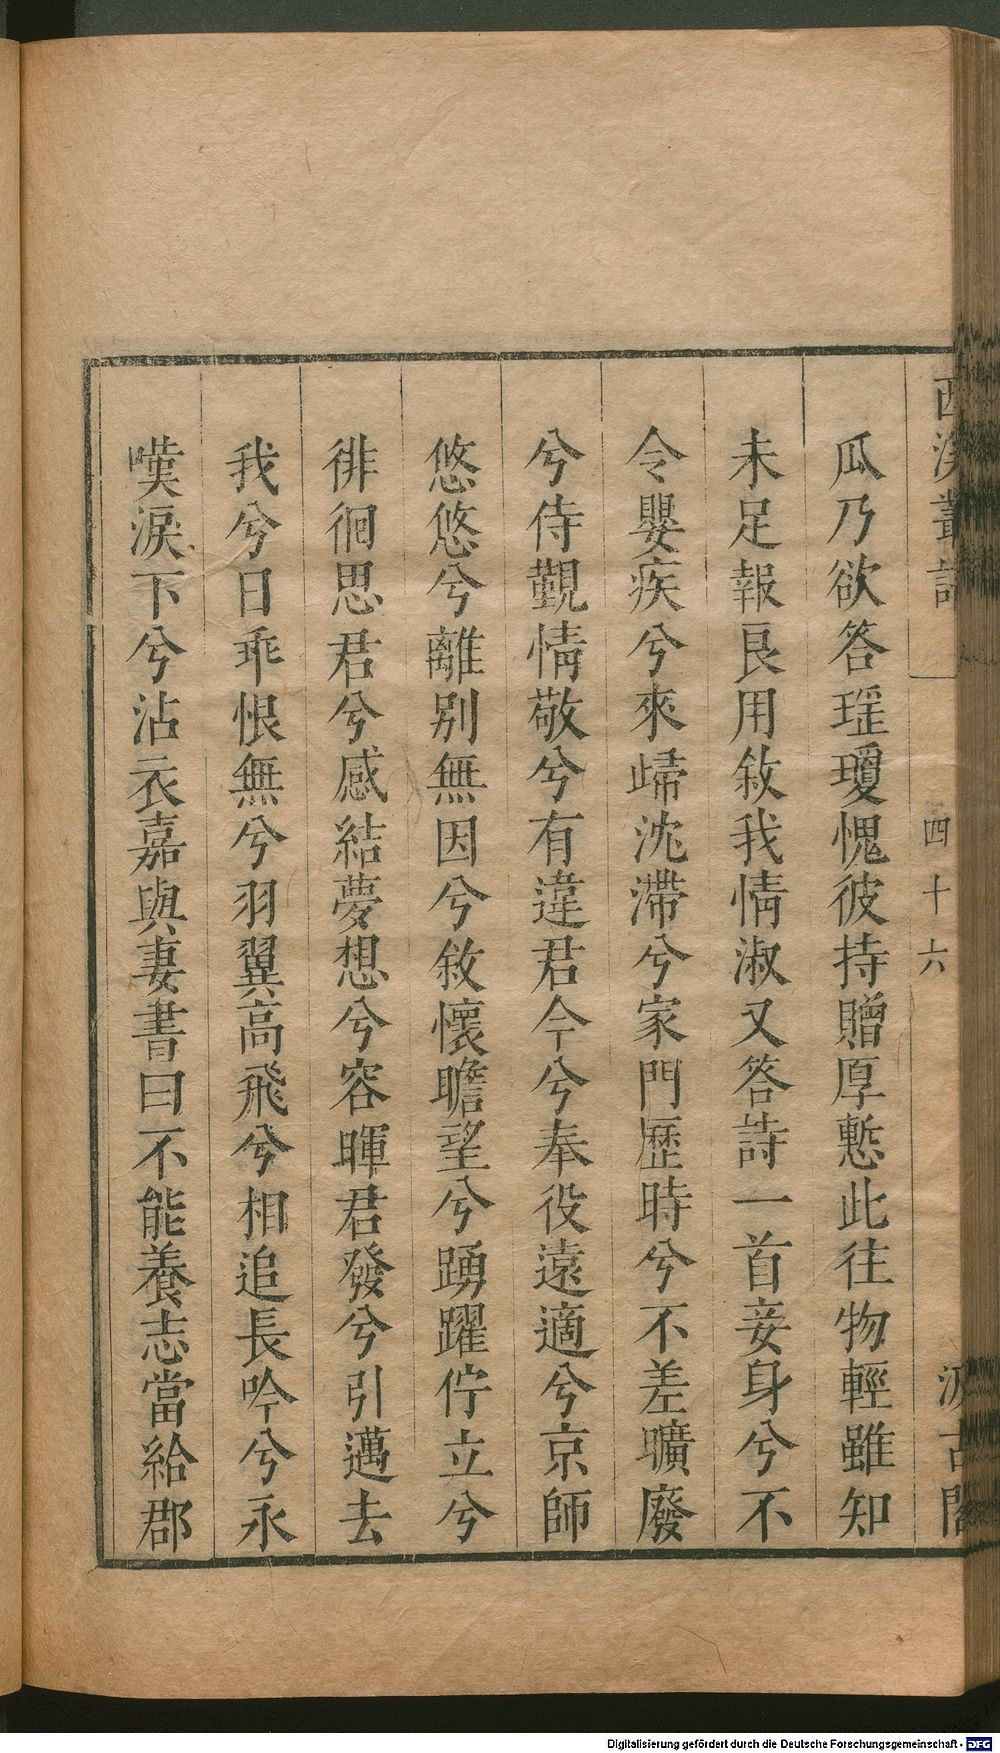 西溪叢語
四十六
汲古閣
瓜乃欲答瑶瓊愧彼持贈厚慙此往物輕雖知
未足報良用敘我情淑又答詩一首妾身兮不
令嬰疾兮來歸沈滯兮家門歷時兮不差曠廢
兮侍覲情敬兮有違君今兮奉役遠適兮京師
悠悠兮離别無因兮敘懷瞻望兮踴躍佇立兮
徘徊思君兮感結夢想兮容暉君發兮引邁去
我兮日乖恨無兮羽翼高飛兮相追長吟兮永
嘆淚下兮沾衣嘉與妻書曰不能養志當給郡
Digitalisierung gefördert durch die Deutsche Forschungsgemeinschaft - DFG